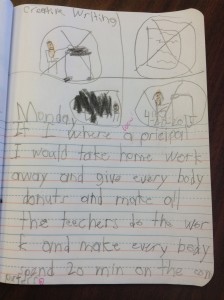 Creative Writing
Monday
If I where a prieipal
I would take home work
away and give every body
donuts and make all
the teachers do the wor
k and make every body
spend 20 min on the